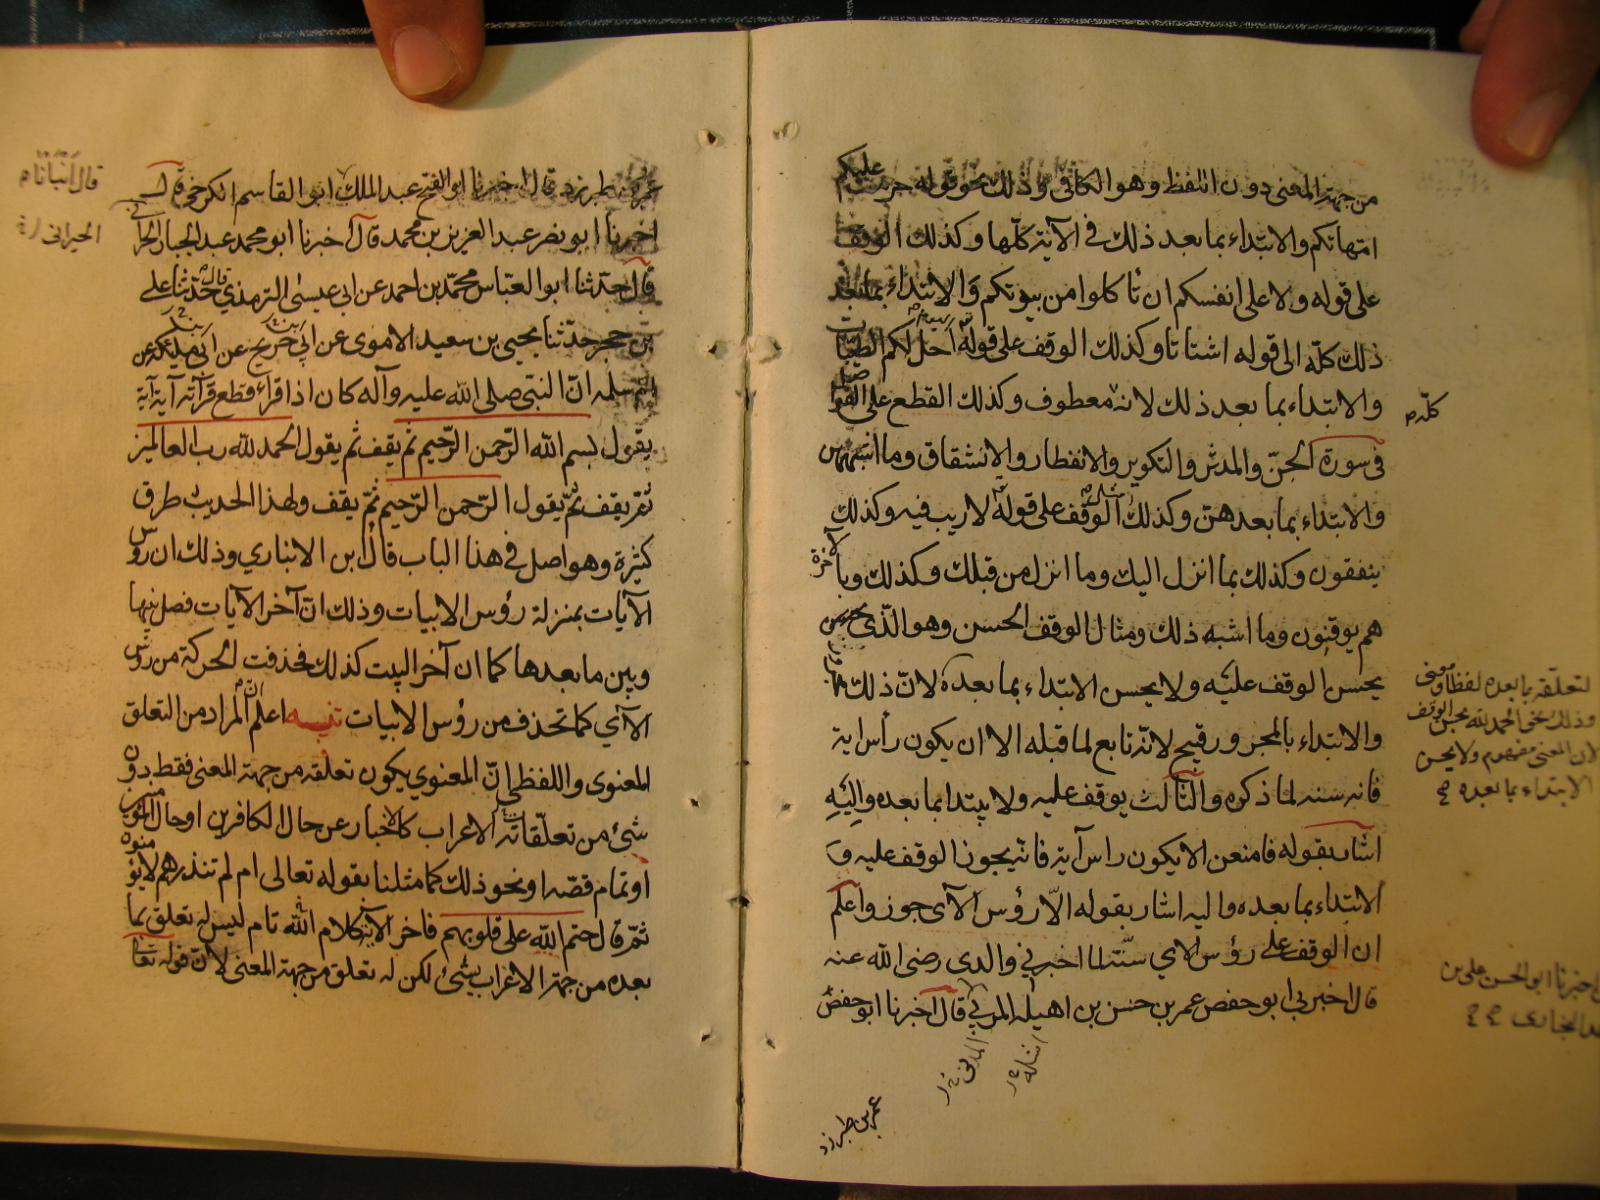 من جهة المعنى دون اللفظ وهو الكافى وذلك نحو قوله حرمت عليكم
امهاتكم والابتداء بما بعد ذلك فى الآية كلّها وكذلك الوقف
على قوله ولا على انفسكم ان تاكلوا من بيوتكم والابتداء بما بعد
ذلك كلّه الى قوله اشتاتا وكذلك الوقف على قوله احل لكم الطيبات
والابتداء بما بعد ذلك لانه معطوف وكذلك القطع على الفواصل
فى سورة الجنّ والمدثر والتكوير والانفطار والانشقاق وما اشبههن
والابتداء بما بعدهن وكذلك الوقف على قوله لا ريب فيه وكذلك
ينفقون وكذلك بما انزل اليك وما انزل من قبلك وكذلك وبالآخرة
هم يوقنون وما اشبه ذلك ومثال الوقف الحسن وهو الذى
يحسن الوقف عليه ولا يحسن الابتداء بما بعده لان ذلك
والابتداء بالمجرور قبيح لانه تابع لما قبله الا ان يكون رأس اية
فانه سنه لما ذكره والثالث يوقف عليه ولا يبتدا بما بعده واليه
اشار بقوله فامنعن الا يكون راس آية فانه يجوز الوقف عليه و
الابتداء بما بعده واليه اشار بقوله الّا رؤس الآى جوز واعلم
ان الوقف على رؤس الاي سنّة لما اخبرني والدى رضى الله عنه
قال اخبرنى ابو حفص عمر بن حسن بن اميله المزي قال اخبرنا ابو حفص
عمر بن طبرزد
كلّه
لتعلقه بما بعده لفظا ومعنى
وذلك نحو الحمد لله يحسن الوقف
لان المعنى مفهوم ولا يحسن
الابتداء بما بعده
اخبرنا ابو الحسن على بن
البخارى
عمر بن طبرزد قال اخبرنا ابو الفتح عبد الملك ابو القاسم الكرخي قال
اخبرنا ابو نصر عبد العزيز بن محمد قال اخبرنا ابو محمد عبد الجبار
قال حدثنا ابو العبّاس محمّد بن احمد عن ابى عيسى الترمذي قال حدّثنا على
بن حجر حدّثنا يحيى بن سعيد الاموى عن ابن جريج عن ابن ابى مليكه عن
ام سلمه انّ النبى صلى الله عليه وآله كان اذا قرأ قطع قرآته آية آية
يقول بسم الله الرّحمن الرّحيم ثم يقف ثم يقول الحمد لله رب العالمين
ثم يقف ثمّ يقول الرّحمن الرّحيم ثمّ يقف ولهذا الحديث طرق
كثيرة وهو اصل فى هذا الباب قال بن الانباري وذلك ان رؤس
الآيات بمنزلة رؤس الابيات وذلك انّ آخر الآيات فصل بينها
وبين ما بعدها كما ان آخر البيت كذلك فحذفت الحركة من رؤس
الآي كما تحذف من رؤس الابيات تنبيه اعلم انّ المراد من التعلق
المعنوى واللفظى انّ المعنوي يكون تعلقه من جهة المعنى فقط دون
شئ من تعلّقات الاعراب كالاخبار عن حال الكافرين او حال المؤمنين
او تمام قصّه او نحو ذلك كما مثلنا بقوله تعالى ام لم تنذرهم لا يؤمنون
ثمّ قال ختم الله على قلوبهم فاخر الآية كلام الله تام ليس له تعلق بما
بعده من جهة الاعراب بشئ لكن له تعلق من جهة المعنى لانّ قوله تعا
قال انبانا